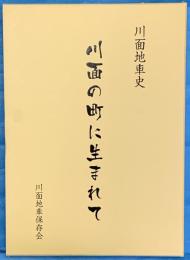 川面地車史
川面の町に生まれて
川面地車保存会